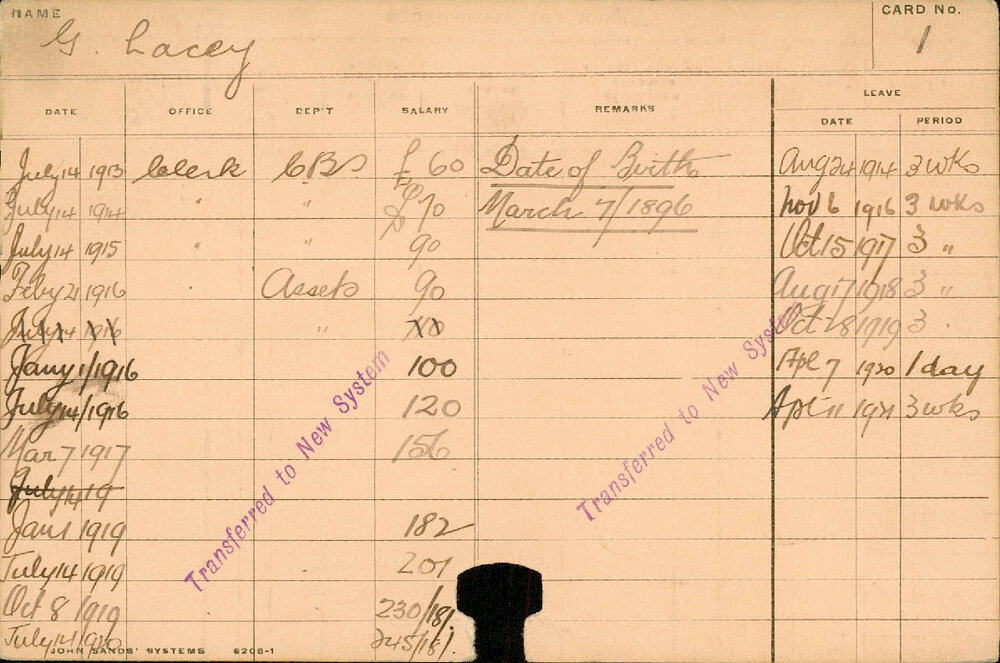 NAME
G. Lacey
CARD No.
1
DATE OFFICE DEP'T SALARY REMARKS LEAVE
DATE PERIOD
July 14 1913 Clerk CBS £ 60 Date of Birth Aug 24 1914 3 wks
July 14 1914 " " 70 March 7/1896 Nov 6 1916 3 wks
July 14 1915 " " 90 Oct 15 1917 3 "
Feby 21 1916 Assets 90 Aug 17 1918 3 "
July 14 1916 " 110 Oct 8 1919 3
Jany 1/1916 100 Apl 7 1920 1 day
July 14/1916 120 Apl 11 1921 3 wks
Mar 7 1917 156
July 14 19
Jan 1 1919 182
July 14 1919 201
Oct 8 1919 230/18/.
July 14 1920 245/18/.
Transferred to New System
Transferred to New System
JOHN SANDS' SYSTEMS 6206-1